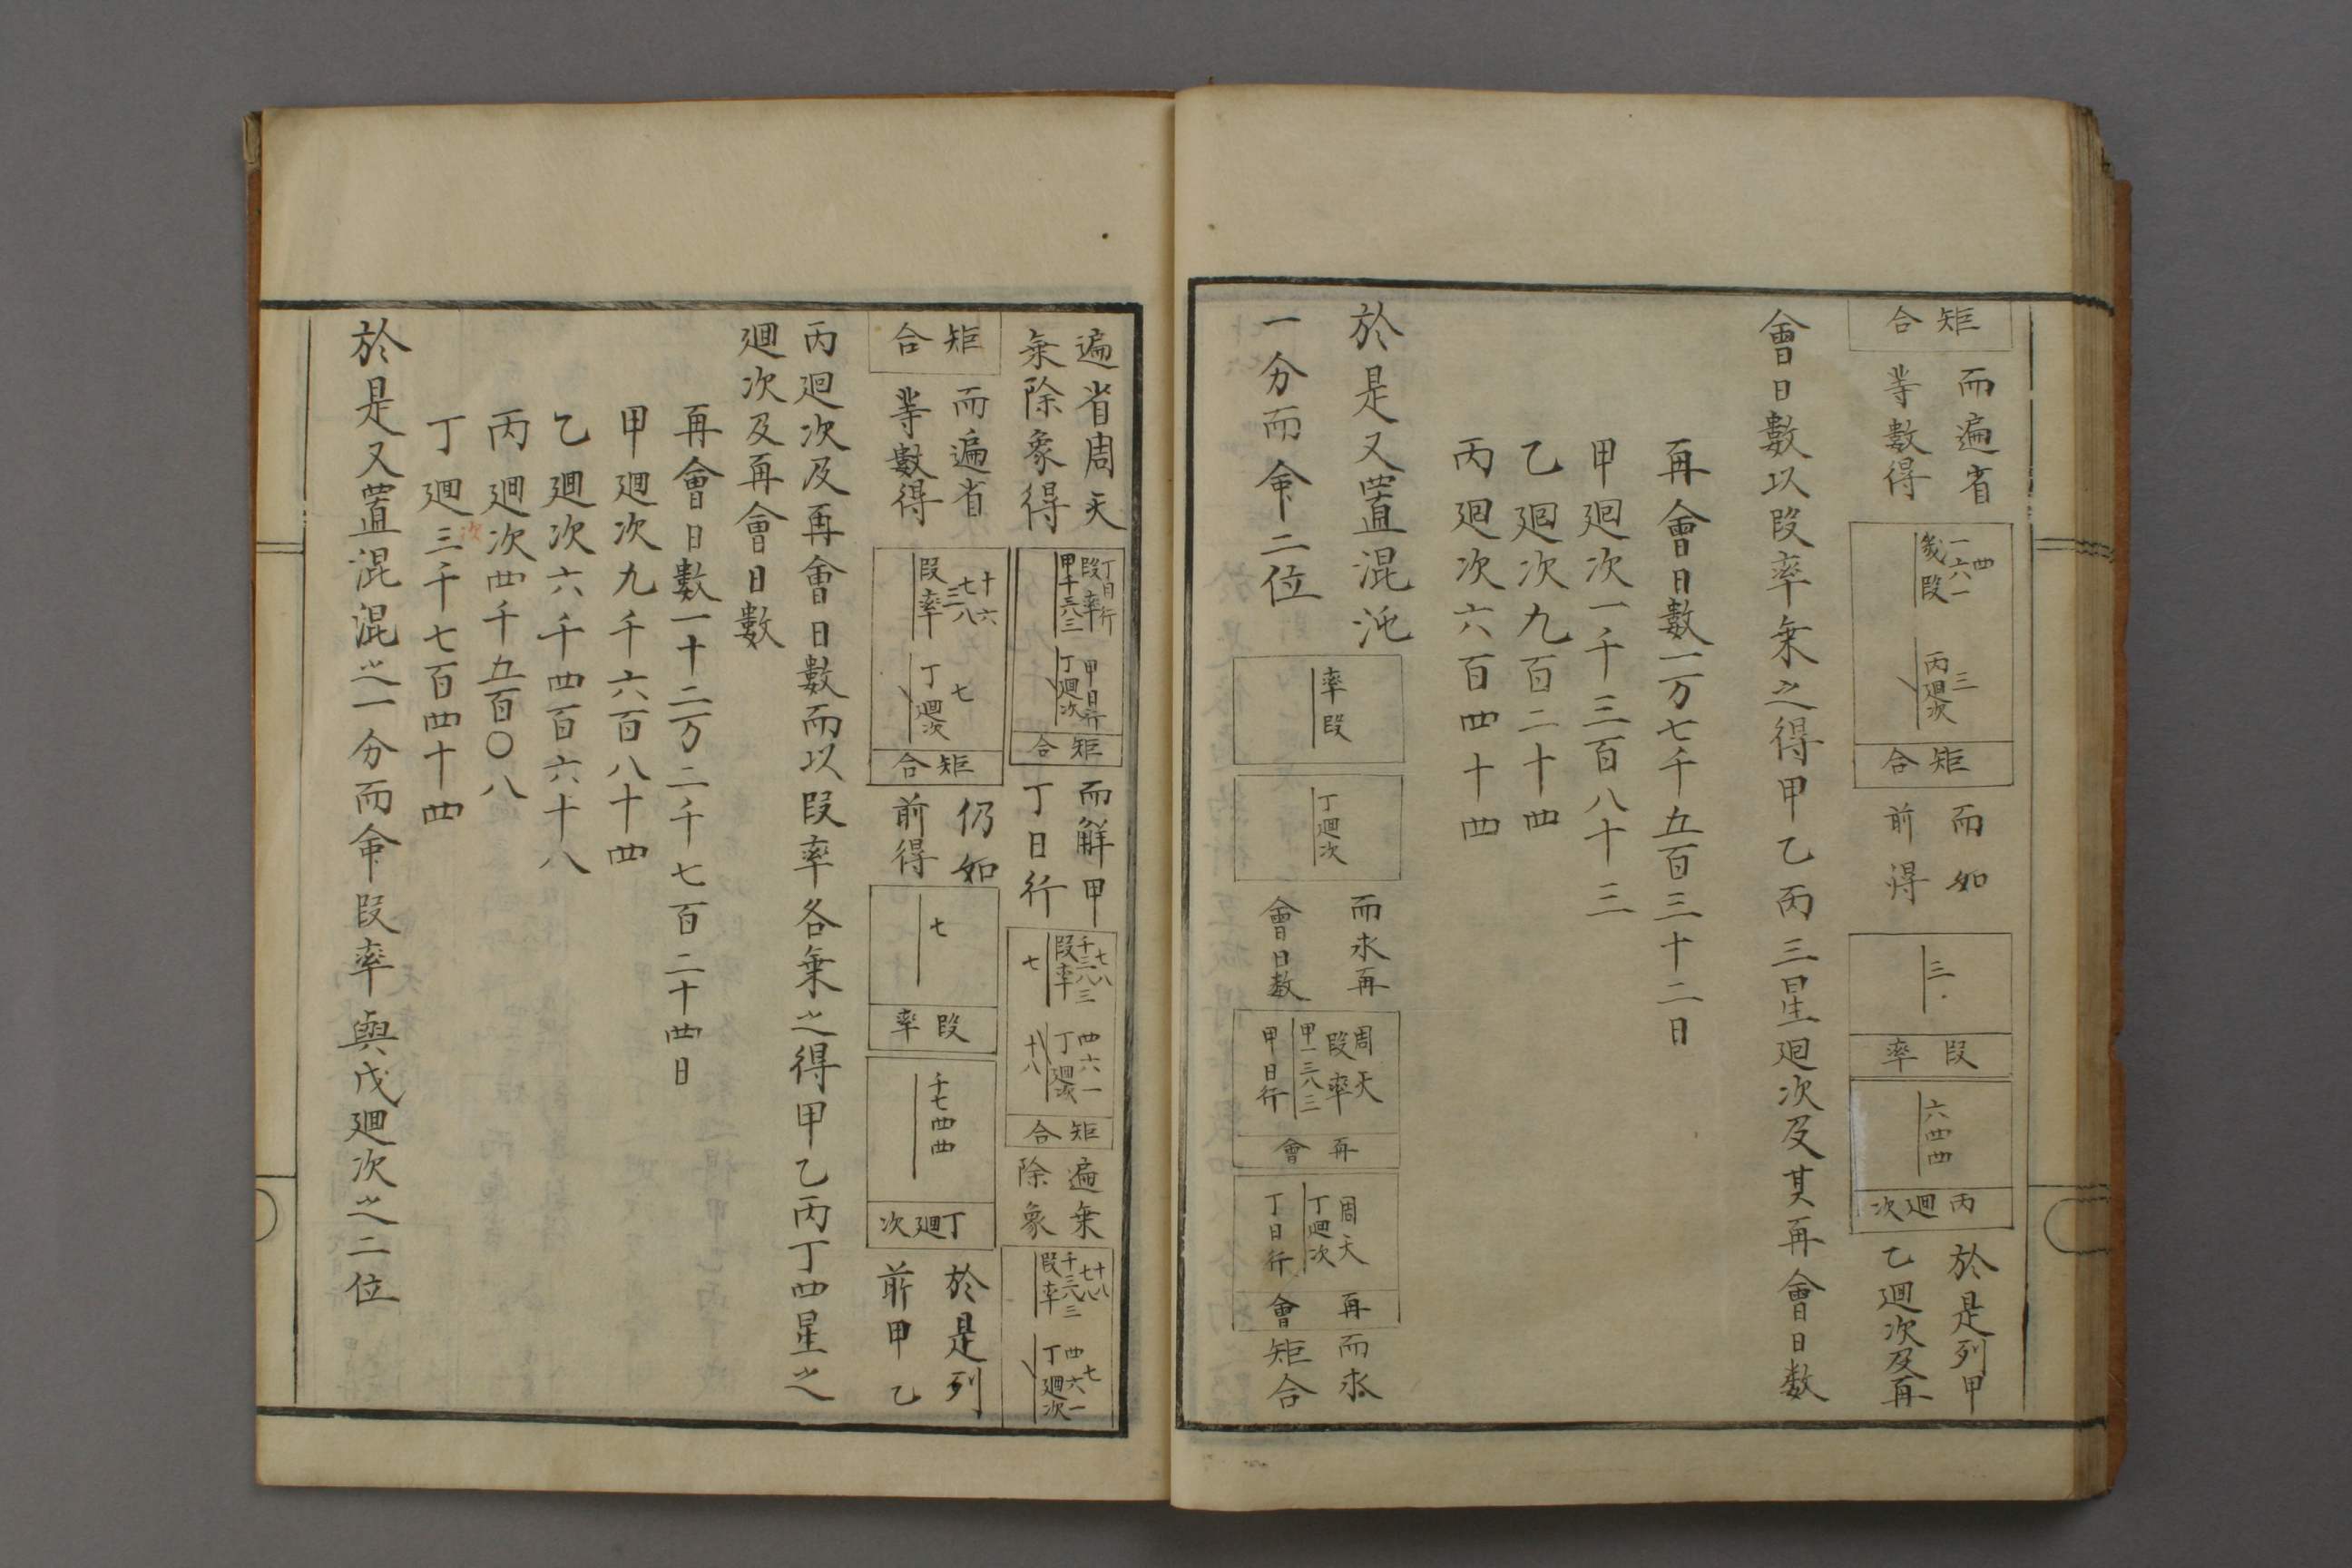 矩合
而遍省
等數得
四
一六一
幾段
三
丙廻次
矩合
而如
前得
三
段率
六四四
丙廻次
於是列甲
乙廻次及再
會日數以段率乗之得甲乙丙三星廻次及其再會日数
再會日數一万七千五百三十二日
甲廻次一千三百八十三
乙廻次九百二十四
丙廻次六百四十四
於是又置混沌
一分而命二位
率段
丁廻次
而求再
會日数
周天
段率
甲一三八三
甲日行
再會
周天
丁廻次
丁日行
再會
而求
矩合
遍省周天
乗除象得
丁日行
段率
甲千三八三
甲日行
丁廻次
矩合
而解甲
丁日行
七八
千三八三
段率
七
四六一
丁廻次
十八
矩合
遍乗
除象
十八
七八
千三八三
段率
七
四六一
丁廻次
矩合
而遍省
等數得
十六
七八
三
段率
七
丁廻次
矩合
仍如
前得
七
段率
千七四四
丁廻次
於是列
前甲乙
丙廻次及再會日數而以段率各乗之得甲乙丙丁四星之
廻次及再會日數
再會日數一十二万二千七百二十四日
甲廻次九千六百八十四
乙廻次六千四百六十八
丙廻次四千五百〇八
丁廻次三千七百四十四
於是又置混混之一分而命段率與戊廻次之二位